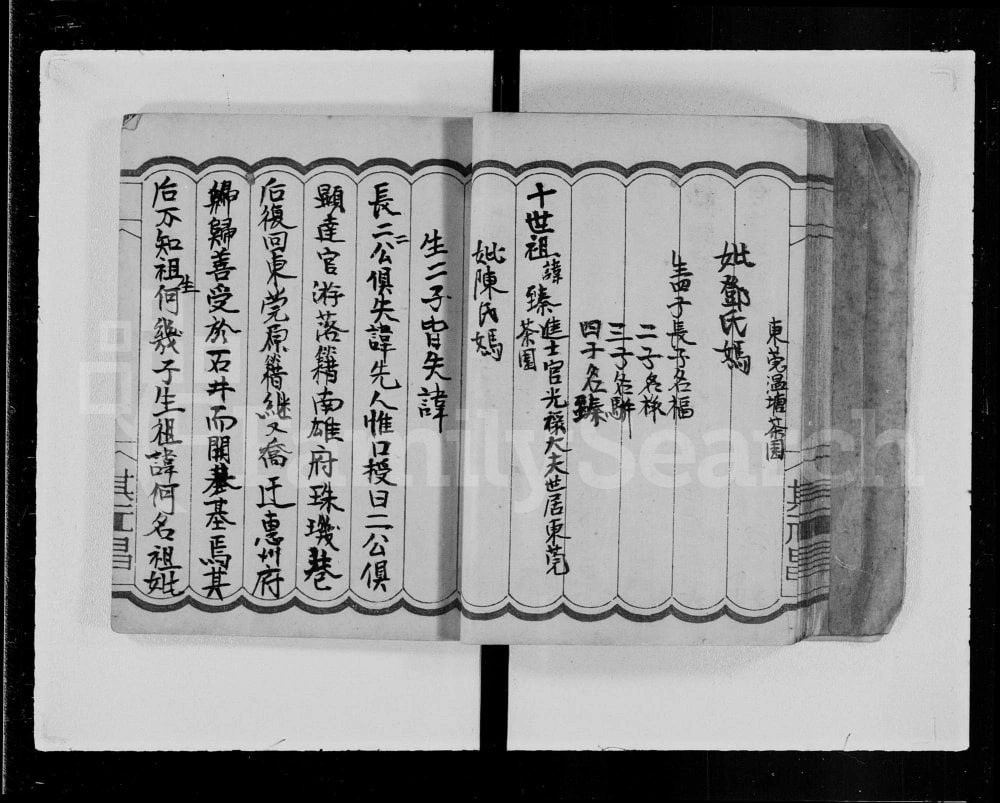 東莞溫塘茶園
妣鄧氏媽
生四子長子名福
二子名祿
三子名駢
四子名臻
十世祖諱臻進士官光祿大夫世居東莞
茶園
妣陳氏媽
生二子皆失諱
長二二公俱失諱先人惟口授曰二公俱
顯達官游落籍南雄府珠璣巷
后復回東莞原籍継又喬迁惠州府
歸善受於石井而開基焉其
后不知祖生何幾子生祖諱何名祖妣
FamilySearch